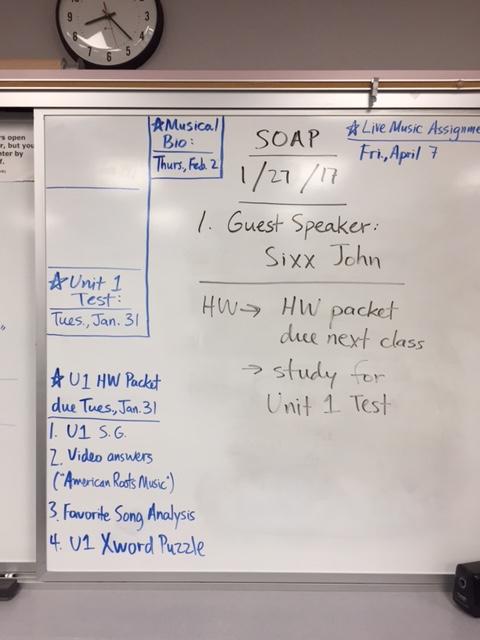 9
8
7
6
5
4
s open
r, but you
nter by
f.
☆Musical
Bio:
Thurs., Feb. 2
SOAP
1/27/17
☆Live Music Assignme
Fri., April 7
1. Guest Speaker:
Sixx John
HW→ HW packet
due next class
→ study for
Unit 1 Test
☆Unit 1
Test:
Tues., Jan. 31
☆ U1 HW Packet
due Tues., Jan. 31
1. U1 S.G.
2. Video answers
("American Roots Music")
3. Favorite Song Analysis
4. U1 Xword Puzzle